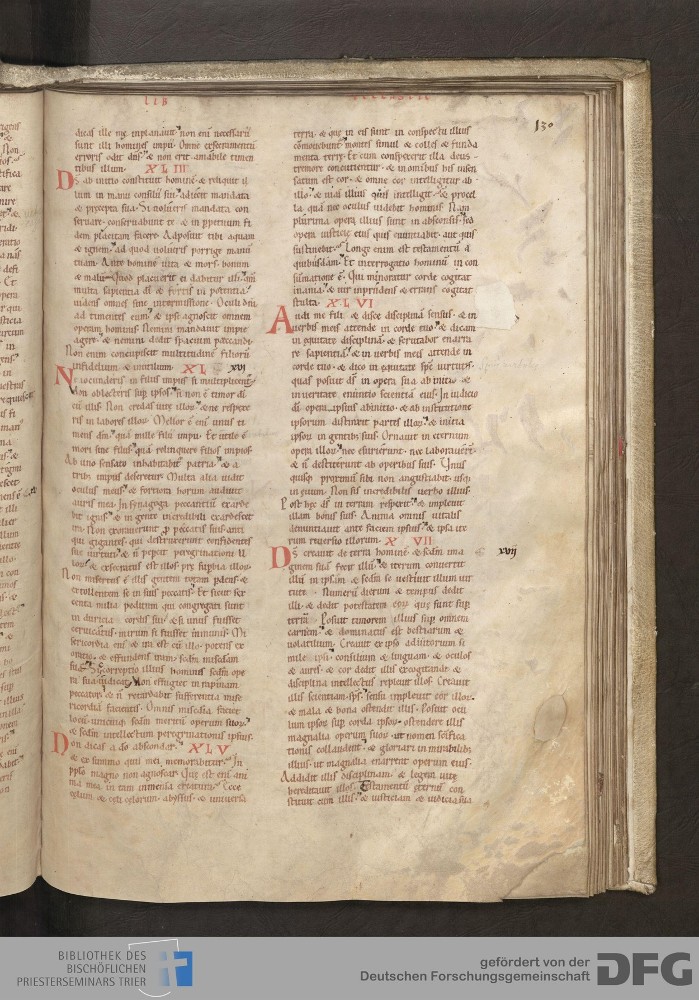 LIB
130
dicas ille me inplanauit. non eni necessarii
sunt illi homines impii. Omne exsecramentu
erroris odit dns. & non erit amabile timen
tibus illum. XLIII
Ds ab initio constituit homine. & reliquit il
lum in manu consilii sui. adiecit mandata
& precepta sua. Si uolueris mandata con
seruare. conseruabunt te. & in perpetuum fi
dem placitam facere. Adposuit tibi aquam
& ignem. ad quod uolueris porrige manu
tuam. Ante homine uita & mors. bonum
& malu. Quod placuerit ei dabitur illi. qm
multa sapientia di. & fortis in potentia
uidens omnes sine intermissione. Oculi dni
ad timentes eum. & ipse agnoscit omnem
operam hominis. Nemini mandauit impie
agere. & nemini dedit spacium peccandi.
Non enim concupiscit multitudine filioru
infidelium & inutilium. XL xvi
Ne iocunderis in filiis impiis si multiplicent.
Non oblecteris sup ipsos. si non e timor di
cu illis. Non credas uite illor. & ne respexe
ris in labores illor. Melior e eni unus ti
mens dm. qua mille filii impii. Et utile e
mori sine filiis. qua relinquere filios impios.
Ab uno sensato inhabitabit patria. & a
tribus impiis deseretur. Multa alia uidit
oculus meus. & fortiora horum audiuit
auris mea. In synagoga peccantiu exarde
bit ignis. & in gente incredibili exardescet
ira. Non exorauerunt p peccatis suis anti
qui gigantes. qui destructi sunt confidentes
sue uirtuti. & n pepcit peregrinationi il
lor. & exsecratus est illos pre supbia illor.
Non misertus e illis gentem totam pdens. &
extollentem se in suis peccatis. Et sicut sex
centa milia peditum qui congregati sunt
in duricia cordis sui. & si unus fuisset
ceruicatus. mirum si fuisset inmunis. Mi
sericordia eni & ira est cu illo. potens ex
oratio. & effundens iram. scdm misedam
sua. Sic correptio illius hominis scdm ope
ra sua iudicat. Non effugiet in rapinam
peccator. & n retardabit sufferentia mise
ricordia facientis. Omnis miscdia faciet
locu unicuiq. scdm meritu operum suor.
& scdm intellectum peregrinationis ipsius.
Non dicas a do abscondar. XLV
& ex summo quis mei memorabitur. In
pplo magno non agnoscar. Que est eni ani
ma mea in tam inmensa creatura. Ecce
celum & celi celorum. abyssus & uniuersa
terra. & que in eis sunt in conspectu illius
commouebunt. montes simul & colles & funda
menta terre. Et cum conspexerit illa deus.
tremore concutientur. & in omnibus his insen
satum est cor. & omne cor intelligitur ab
illo. & uias illius quis intelligit. & procel
la qua nec oculus uidebit hominis. Nam
plurima opera illius sunt in absconsis. sed
opera iusticie eius quis enuntiabit. aut quis
sustinebit. Longe enim est testamentu a
quibusdam. Et interrogatio hominu in con
summatione e. Qui minoratur corde cogitat
inania. & uir inprudens & errans cogitat
stulta. XLVI
Audi me fili. & disce disciplina sensus. & in
uerbis meis attende in corde tuo. & dicam
in equitate disciplina. & scrutabor enarra
re sapientia. & in uerbis meis attende in
corde tuo. & dico in equitate sps uirtutes.
quas posuit ds in opera sua ab initio. &
in ueritate enuntio scientia eius. In iudicio
di opera ipsius ab initio. & ab institutione
ipsorum distinxit partes illor. & initia
ipsor in gentibus suis. Ornauit in eternum
opera illor. nec esurierunt. nec laborauert.
& n destiterunt ab operibus suis. Unus
quisq proximu sibi non angustiabit. usq
in euum. Non sis incredibilis uerbo illius.
Post hec ds in terram respexit. & impleuit
illam bonis suis. Anima omnis uitalis
denuntiauit ante faciem ipsius. & ipsa ite
rum reuersio illorum. XLVII
Ds creauit de terra homine. & scdm ima xvii
ginem sua fecit illu. & iterum conuertit
illu in ipsam. & scdm se uestiuit illum uir
tute. Numeru dierum & tempus dedit
illi. & dedit potestatem eor que sunt sup
terra. Posuit timorem illius sup omnem
carnem. & dominatus est bestiarum &
uolatilium. Creauit ex ipso adiutorium si
mile ipsi. consilium & linguam. & oculos
& aures. & cor dedit illis excogitandi. &
disciplina intellectus repleuit illos. Creauit
illis scientiam sps. sensu impleuit cor illor.
& mala & bona ostendit illis. Posuit ocu
lum ipsor sup corda ipsor. ostendere illis
magnalia operum suor. ut nomen scifica
tionis collaudent. & gloriari in mirabilib
illius. ut magnalia enarrent operum eius.
Addidit illis disciplinam. & legem uite
hereditauit illos. Testamentu eternu con
stituit cum illis. & iusticiam & iudicia sua
BIBLIOTHEK DES
BISCHÖFLICHEN
PRIESTERSEMINARS TRIER
gefördert von der
Deutschen Forschungsgemeinschaft
DFG